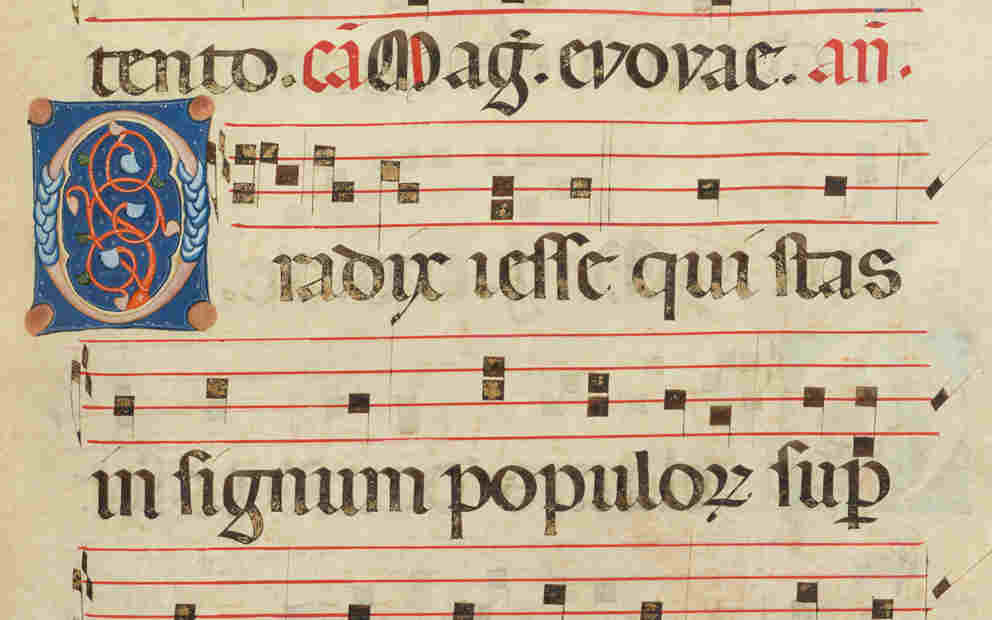 tento. cā Mag̃. evovae. añ.
O radix iesse qui stas
in signum populoꝝ sup̱